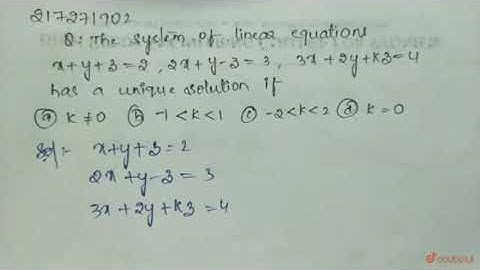 217271902
Q: The system of linear equations
x+y+3=2, 2x+y-3=3, 3x+2y+k3=4
has a unique solution if
(a) k≠0 (b) -1<k<1 (c) -2<k<2 (d) k=0
Sol:- x+y+3=2
2x+y-3=3
3x+2y+k3=4
doubtnut